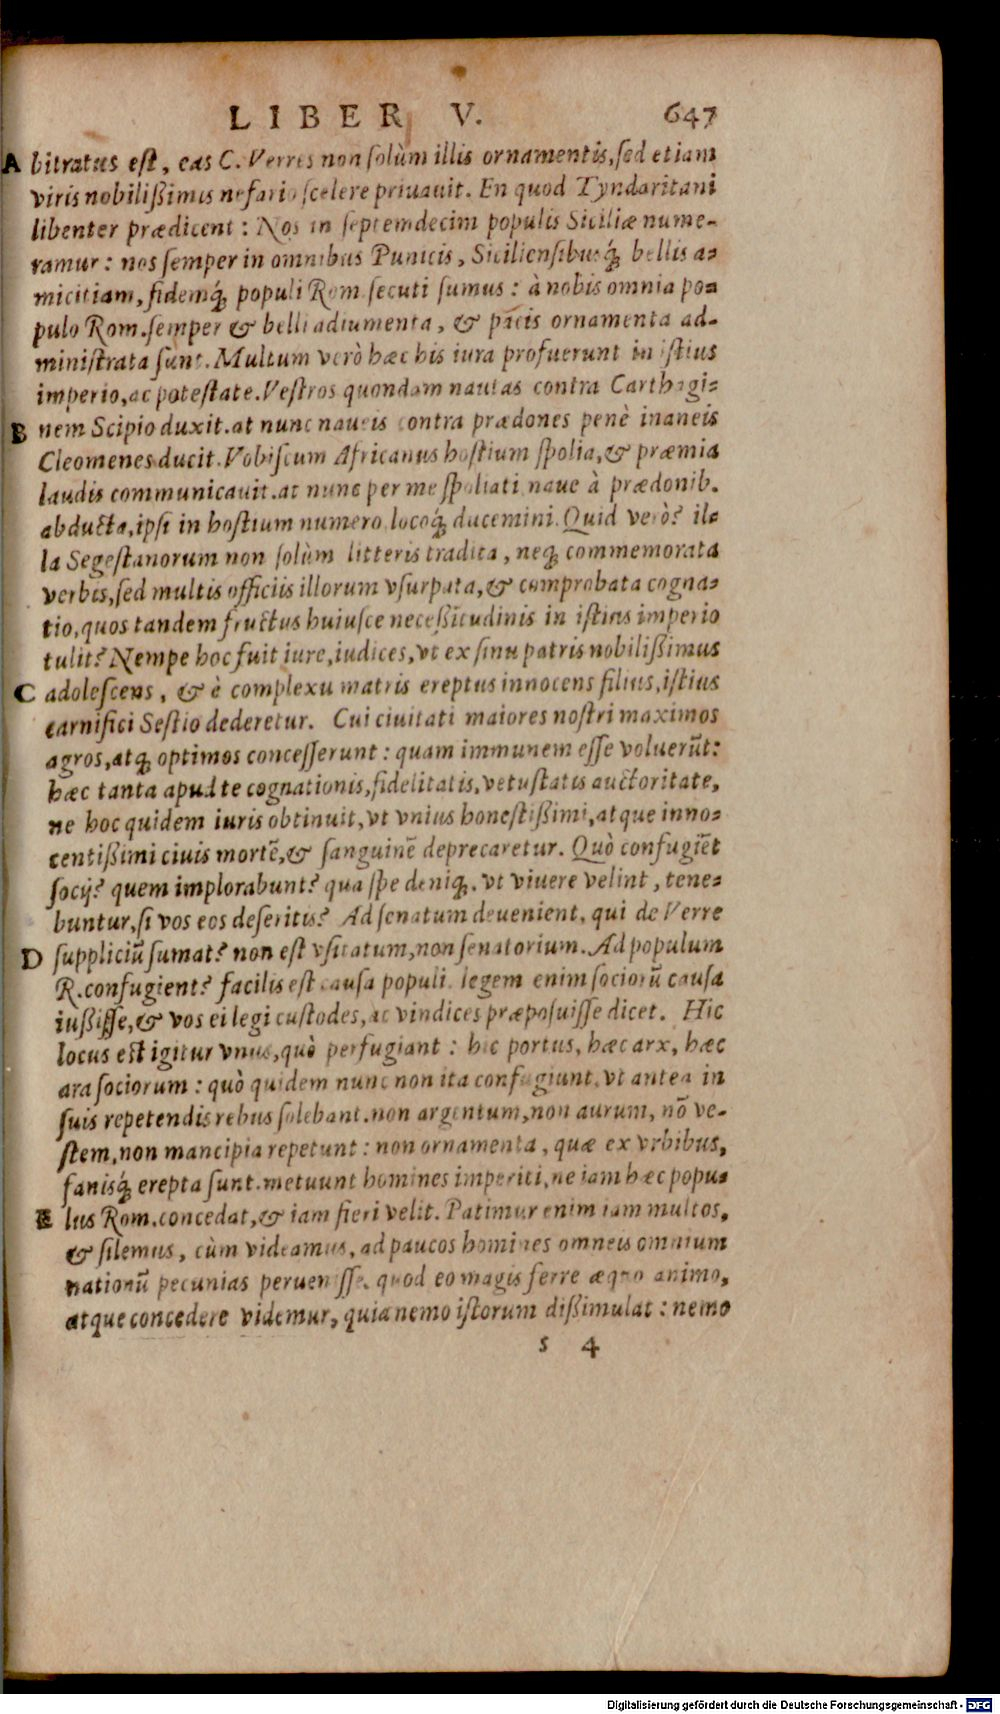 LIBER V. 647
A bitratus est, eas C. Verres non ſolùm illis ornamentis, ſed etiam
viris nobilißimis nefario ſcelere priuauit. En quod Tyndaritani
libenter prædicent: Nos in ſeptemdecim populis Siciliæ nume-
ramur: nos ſemper in omnibus Punicis, Sicilienſibusq́; bellis a-
micitiam, fidemq́; populi Rom. ſecuti ſumus: à nobis omnia po-
pulo Rom. ſemper & belli adiumenta, & pacis ornamenta ad-
miniſtrata ſunt. Multum verò hæc his iura profuerunt in iſtius
imperio, ac poteſtate. Veſtros quondam nautas contra Carthagi-
B nem Scipio duxit. at nunc naueis contra prædones penè inaneis
Cleomenes ducit. Vobiſcum Africanus hoſtium ſpolia, & præmia
laudis communicauit. at nunc per me ſpoliati naue à prædonib.
abducta, ipſi in hoſtium numero locoq́; ducemini. Quid verò? il-
la Segeſtanorum non ſolùm litteris tradita, neq; commemorata
verbis, ſed multis officiis illorum vſurpata, & comprobata cogna-
tio, quos tandem fructus huiuſce neceßitudinis in iſtius imperio
tulit? Nempe hoc fuit iure, iudices, vt ex ſinu patris nobilißimus
C adoleſcens, & è complexu matris ereptus innocens filius, iſtius
carnifici Seſtio dederetur. Cui ciuitati maiores noſtri maximos
agros, atq; optimos conceſſerunt: quam immunem eſſe voluerūt:
hæc tanta apud te cognationis, fidelitatis, vetuſtatis auctoritate,
ne hoc quidem iuris obtinuit, vt vnius honeſtißimi, atque inno-
centißimi ciuis mortē, & ſanguinē deprecaretur. Quò confugiēt
ſocij? quem implorabunt? qua ſpe deniq;. vt viuere velint, tene-
buntur, ſi vos eos deſeritis? Ad ſenatum deuenient, qui de Verre
D ſuppliciū ſumat? non eſt vſitatum, non ſenatorium. Ad populum
R. confugient? facilis eſt cauſa populi. legem enim ſociorū cauſa
iußiſſe, & vos ei legi cuſtodes, ac vindices præpoſuiſſe dicet. Hic
locus eſt igitur vnus, quò perfugiant: hic portus, hæc arx, hæc
ara ſociorum: quò quidem nunc non ita confugiunt, vt antea in
ſuis repetendis rebus ſolebant. non argentum, non aurum, nō ve-
ſtem, non mancipia repetunt: non ornamenta, quæ ex vrbibus,
faniſq́; erepta ſunt. metuunt homines imperiti, ne iam hæc popu-
E lus Rom. concedat, & iam fieri velit. Patimur enim iam multos,
& ſilemus, cùm videamus, ad paucos homines omneis omnium
nationū pecunias perueniſſe. quod eo magis ferre æquo animo,
atque concedere videmur, quia nemo iſtorum dißimulat: nemo
S 4
Digitalisierung gefördert durch die Deutsche Forschungsgemeinschaft - DFG